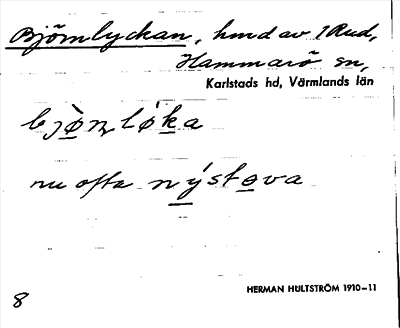 Björnlyckan, hmd av 1 Rud,
Hammarö sn,
Karlstads hd, Värmlands län
bjø̀ɳló̱ka
nu ofta nýstova
HERMAN HULTSTRÖM 1910–11
8